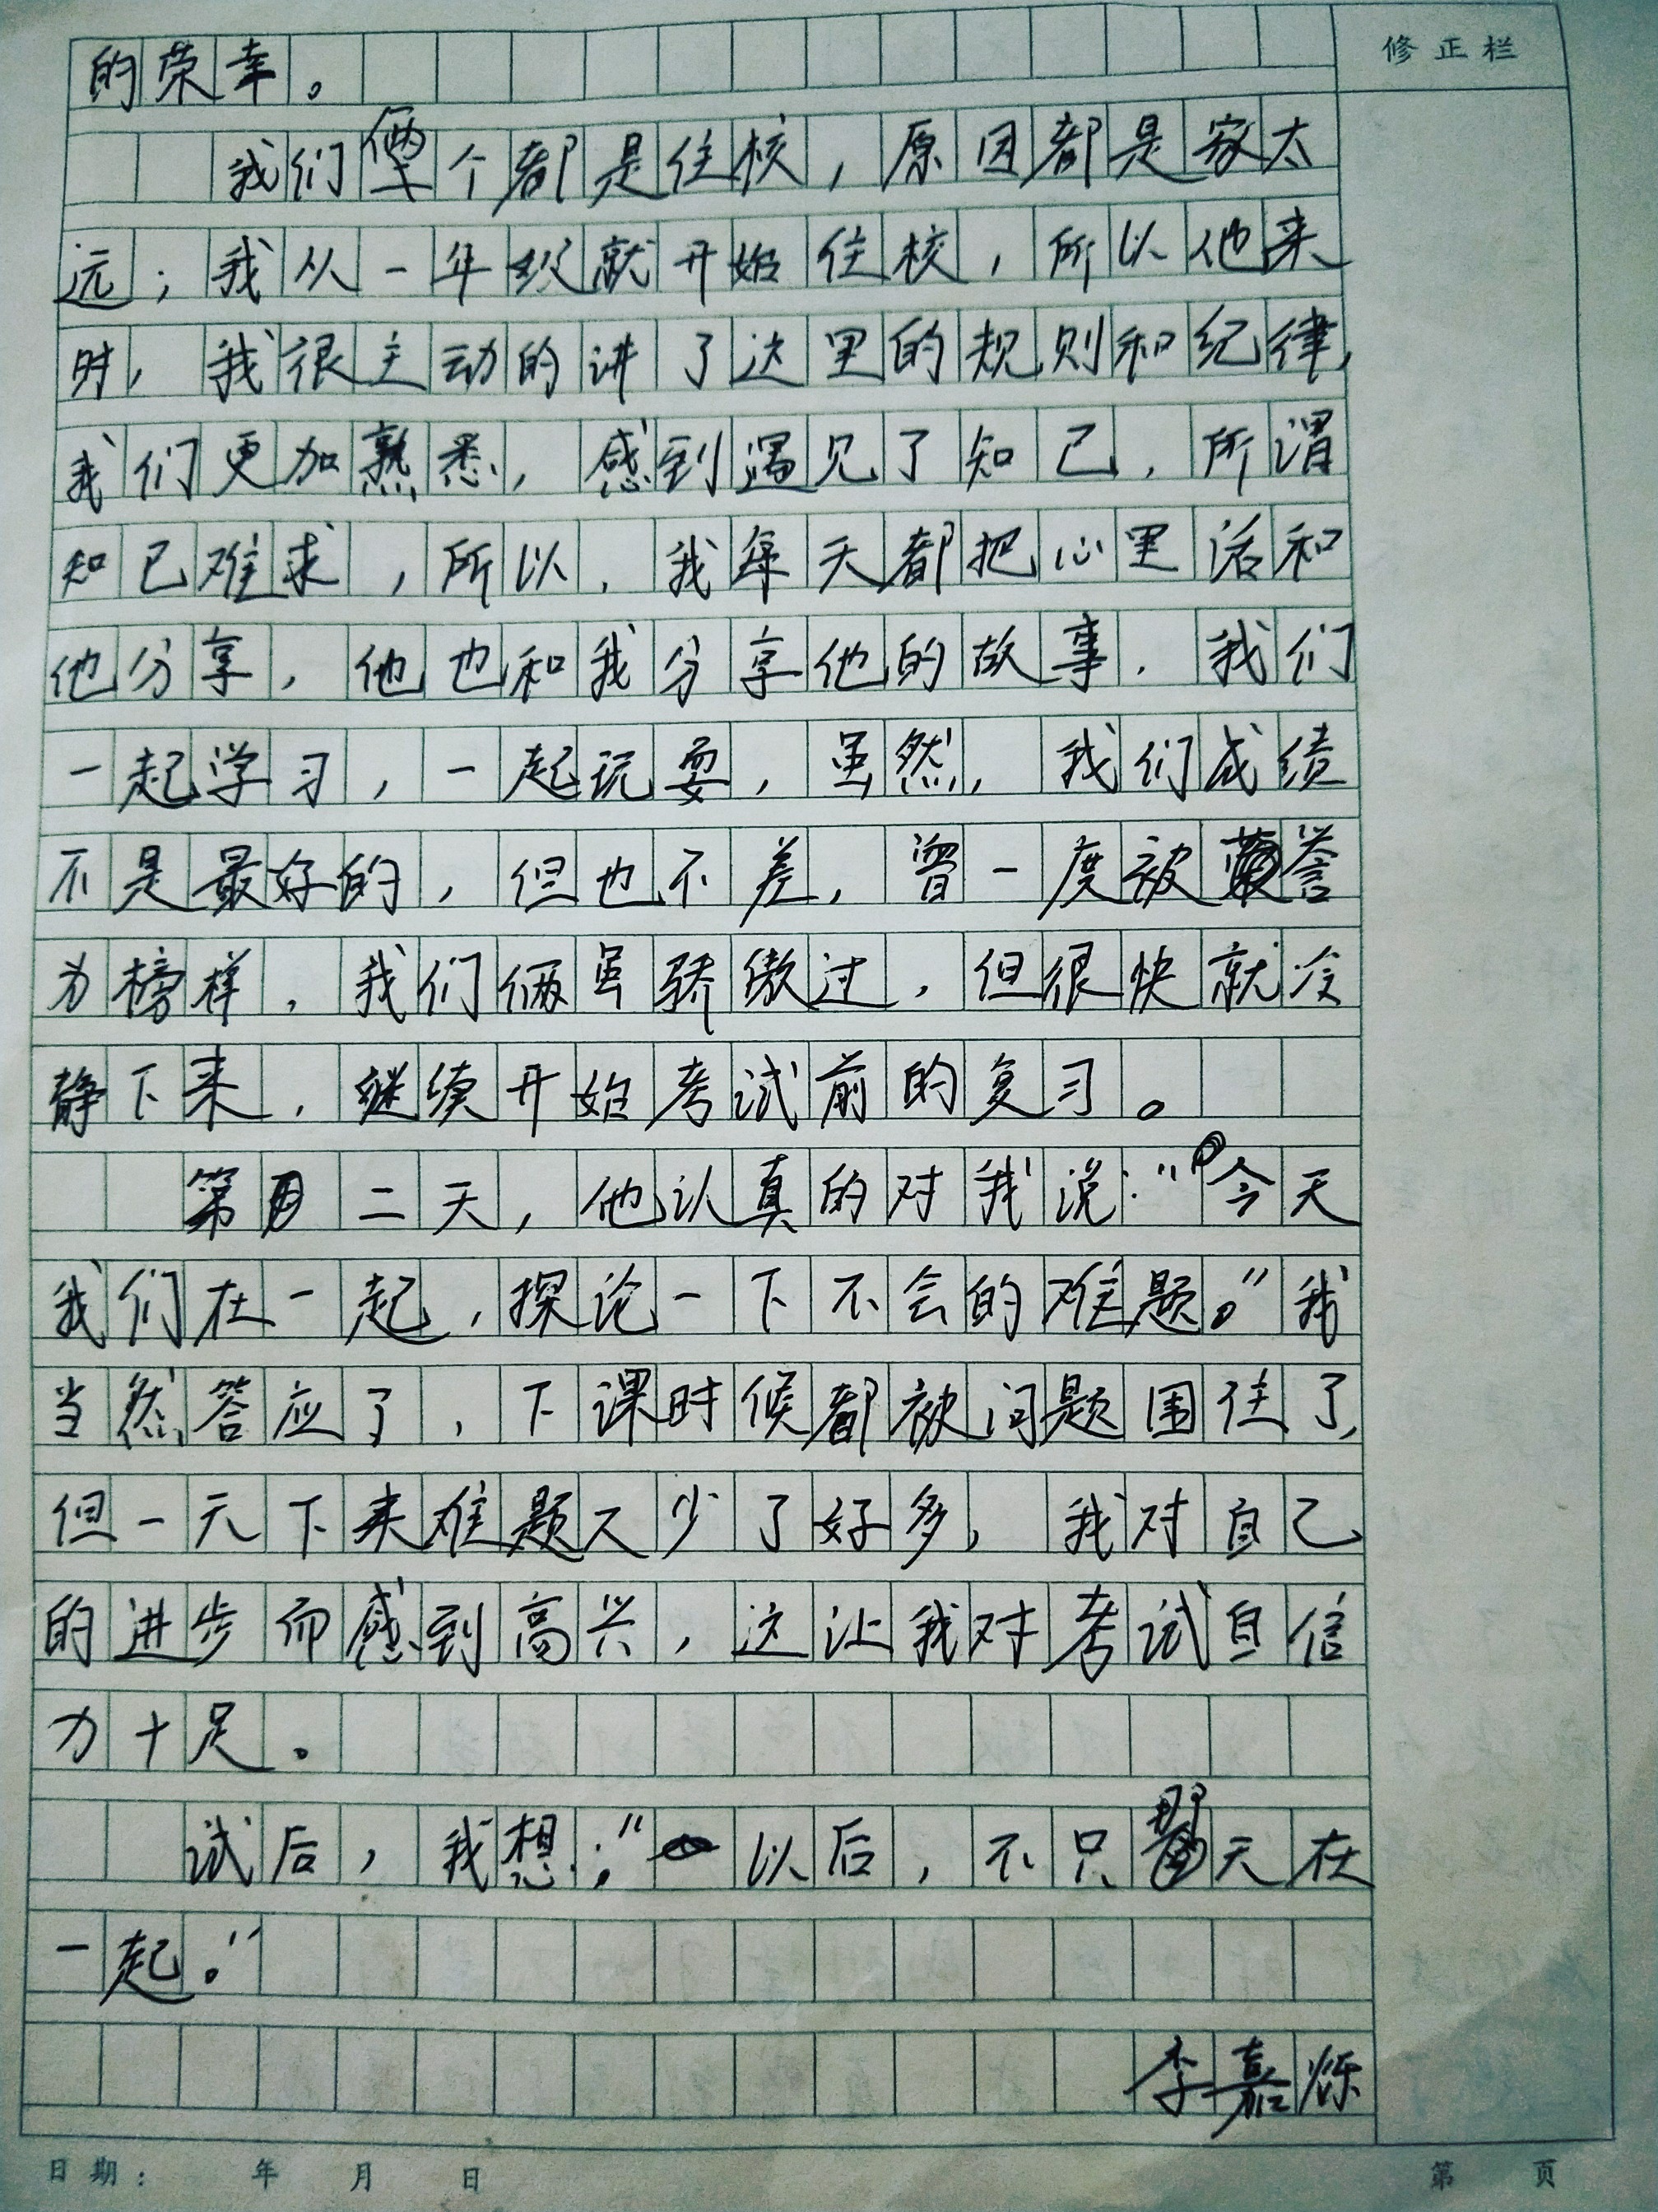 修正栏
的荣幸。
我们俩个都是住校，原因都是家太
远；我从一年级就开始住校，所以他来
时，我很主动的讲了这里的规则和纪律，
我们更加熟悉，感到遇见了知己，所谓
知己难求，所以，我每天都把心里话和
他分享，他也和我分享他的故事，我们
一起学习，一起玩耍，虽然，我们成绩
不是最好的，但也不差，曾一度被誉
为榜样，我们俩虽骄傲过，但很快就冷
静下来，继续开始考试前的复习。
第二天，他认真的对我说："今天
我们在一起，探论一下不会的难题。"我
当然答应了，下课时候都被问题围住了，
但一天下来难题又少了好多，我对自己
的进步而感到高兴，这让我对考试自信
力十足。
试后，我想："以后，不只那天在
一起。"
李嘉烁
日期： 年 月 日 第 页